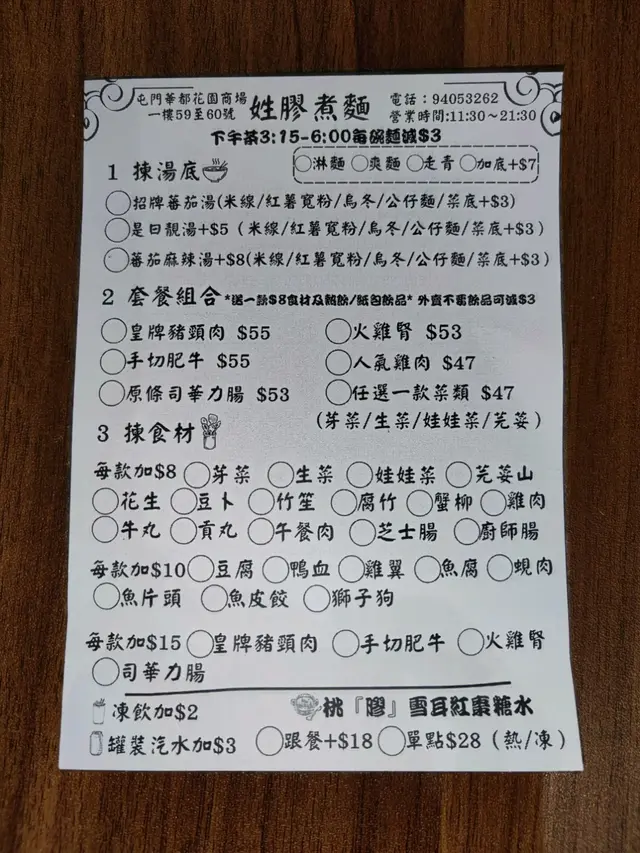 屯門華都花園商場
一樓59至60號
姓膠煮麵
電話：94053262
營業時間:11:30～21:30
下午茶3:15-6:00每碗麵減$3
1 揀湯底
淋麵 爽麵 走青 加底+$7
招牌蕃茄湯(米線/紅薯寬粉/烏冬/公仔麵/菜底+$3)
是日靚湯+$5（米線/紅薯寬粉/烏冬/公仔麵/菜底+$3）
蕃茄麻辣湯+$8(米線/紅薯寬粉/烏冬/公仔麵/菜底+$3）
2 套餐組合 *送一款$8食材及熱飲/紙包飲品* 外賣不要飲品可減$3
皇牌豬頸肉 $55 火雞腎 $53
手切肥牛 $55 人氣雞肉 $47
原條司華力腸 $53 任選一款菜類 $47
(芽菜/生菜/娃娃菜/芫荽)
3 揀食材
每款加$8 芽菜 生菜 娃娃菜 芫荽山
花生 豆卜 竹笙 腐竹 蟹柳 雞肉
牛丸 貢丸 午餐肉 芝士腸 廚師腸
每款加$10 豆腐 鴨血 雞翼 魚腐 蜆肉
魚片頭 魚皮餃 獅子狗
每款加$15 皇牌豬頸肉 手切肥牛 火雞腎
司華力腸
凍飲加$2
桃『膠』雪耳紅棗糖水
罐裝汽水加$3
跟餐+$18 單點$28（熱/凍）